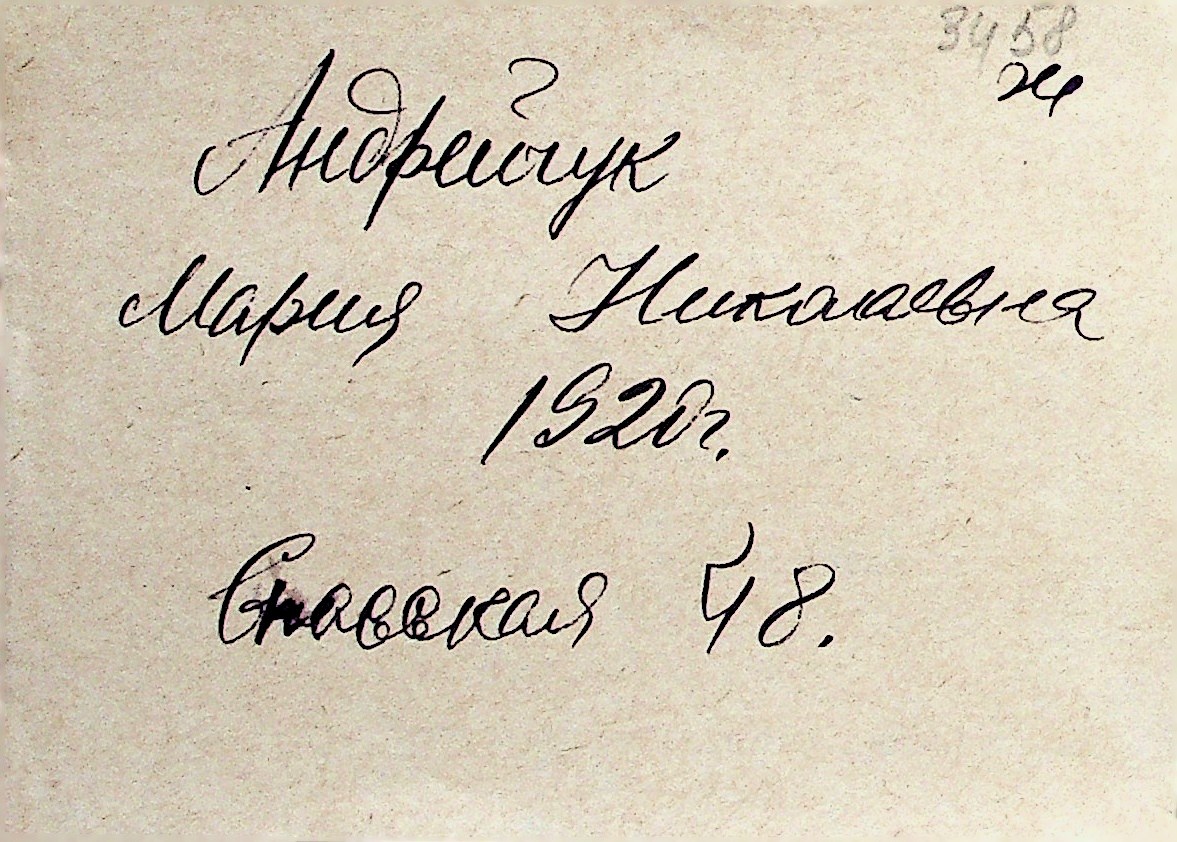 3458
ж
Андрейчук
Мария Николаевна
1920г.
Спасская 48.